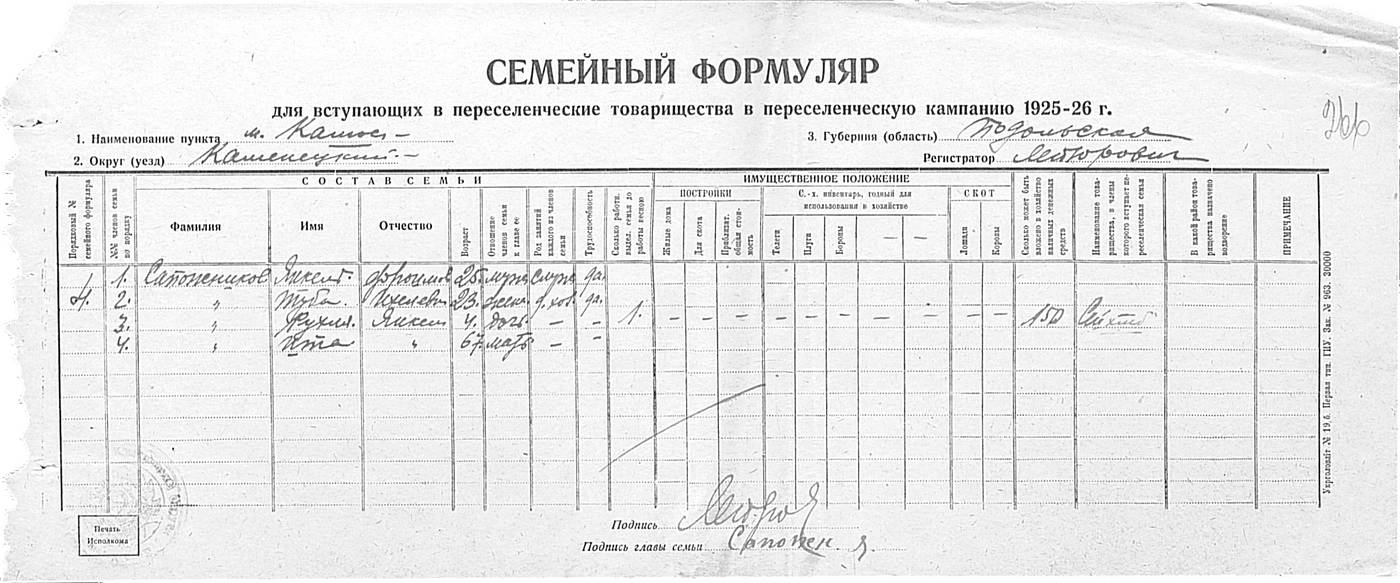 СЕМЕЙНЫЙ ФОРМУЛЯР
для вступающих в переселенческие товарищества в переселенческую кампанию 1925-26 г.
1. Наименование пункта м.
3. Губерния (область) Подольская
2. Округ (уезд) Каменецкий
Регистратор
СОСТАВ СЕМЬИ
ИМУЩЕСТВЕННОЕ ПОЛОЖЕНИЕ
Порядковый № семейного формуляра
№№ членов семьи по порядку
Фамилия
Имя
Отчество
Возраст
Отношение членов семьи к главе ее
Род занятий каждого из членов семьи
Трудоспособность
Сколько работн. выдел. семья до работы весною
ПОСТРОЙКИ
Жилые дома
Для скота
Приблизит. общая стоимость
С.-х. инвентарь, годный для использования в хозяйстве
Телеги
Плуги
Бороны
— —
СКОТ
Лошади
Коровы
Сколько может быть вложено в хозяйство наличных денежных средств
Наименование товарищества, в члены которого вступает переселенческая семья
В какой район товарищества назначено водворение
ПРИМЕЧАНИЕ
4. 1. Сапожников Янкель Фроимов 25. муж служ да.
2. " Туба 23. жена д. хоз. да.
3. " Рухля Янкел 4. дочь — — 1. — — — — — — — — — — 150
4. " Ита " 67. мать — —
Подпись
Подпись главы семьи Сапожн
Печать
Исполкома
Укрголовліт № 19,6. Первая тип. ГИУ. Зак. № 963. 30000